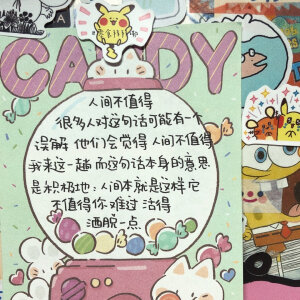 CANDY
人间不值得
很多人对这句话可能有一个
误解 他们会觉得 人间不值得
我来这一趟 而这句话本身的意思
是积极地：人间本就是这样它
不值得你难过 活得
洒脱一点